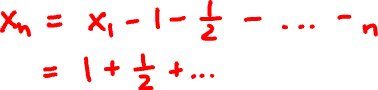 xₙ = x₁ - 1 - 1/2 - ... - ₙ
= 1 + 1/2 + ...